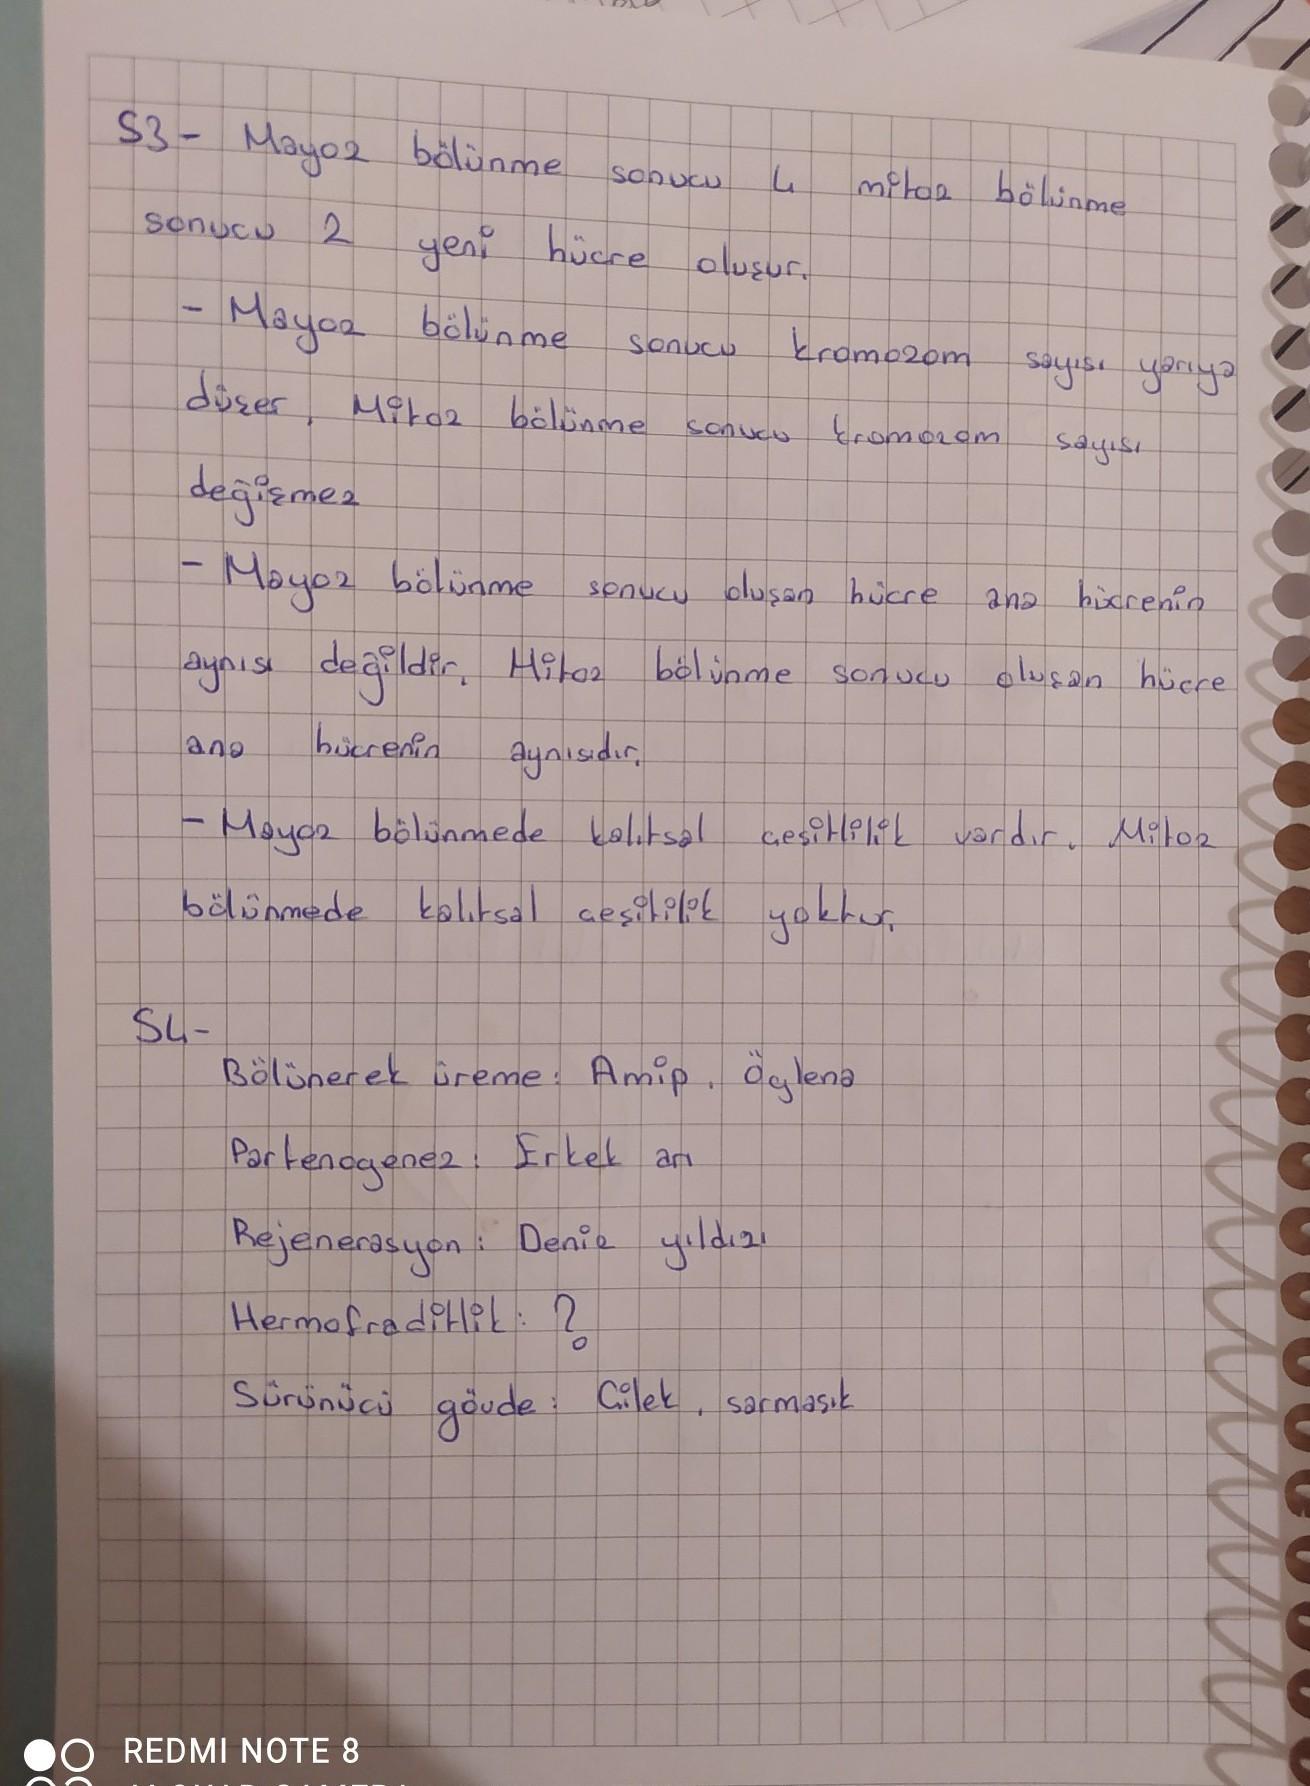 S3- Mayoz bölünme sonucu 4 mitoz bölünme
sonucu 2 yeni hücre oluşur.
- Mayoz bölünme sonucu kromozom sayısı yarıya
düşer, Mitoz bölünme sonucu kromozom sayısı
değişmez
- Mayoz bölünme sonucu oluşan hücre ana hücrenin
aynısı değildir. Mitoz bölünme sonucu oluşan hücre
ana hücrenin aynısıdır.
- Mayoz bölünmede kalıtsal çeşitlilik vardır. Mitoz
bölünmede kalıtsal çeşitlilik yoktur.
S4-
Bölünerek üreme: Amip, Öglena
Partenogenez: Erkek arı
Rejenerasyon: Deniz yıldızı
Hermofraditlik: ?
Sürünücü gövde: Çilek, sarmaşık
REDMI NOTE 8